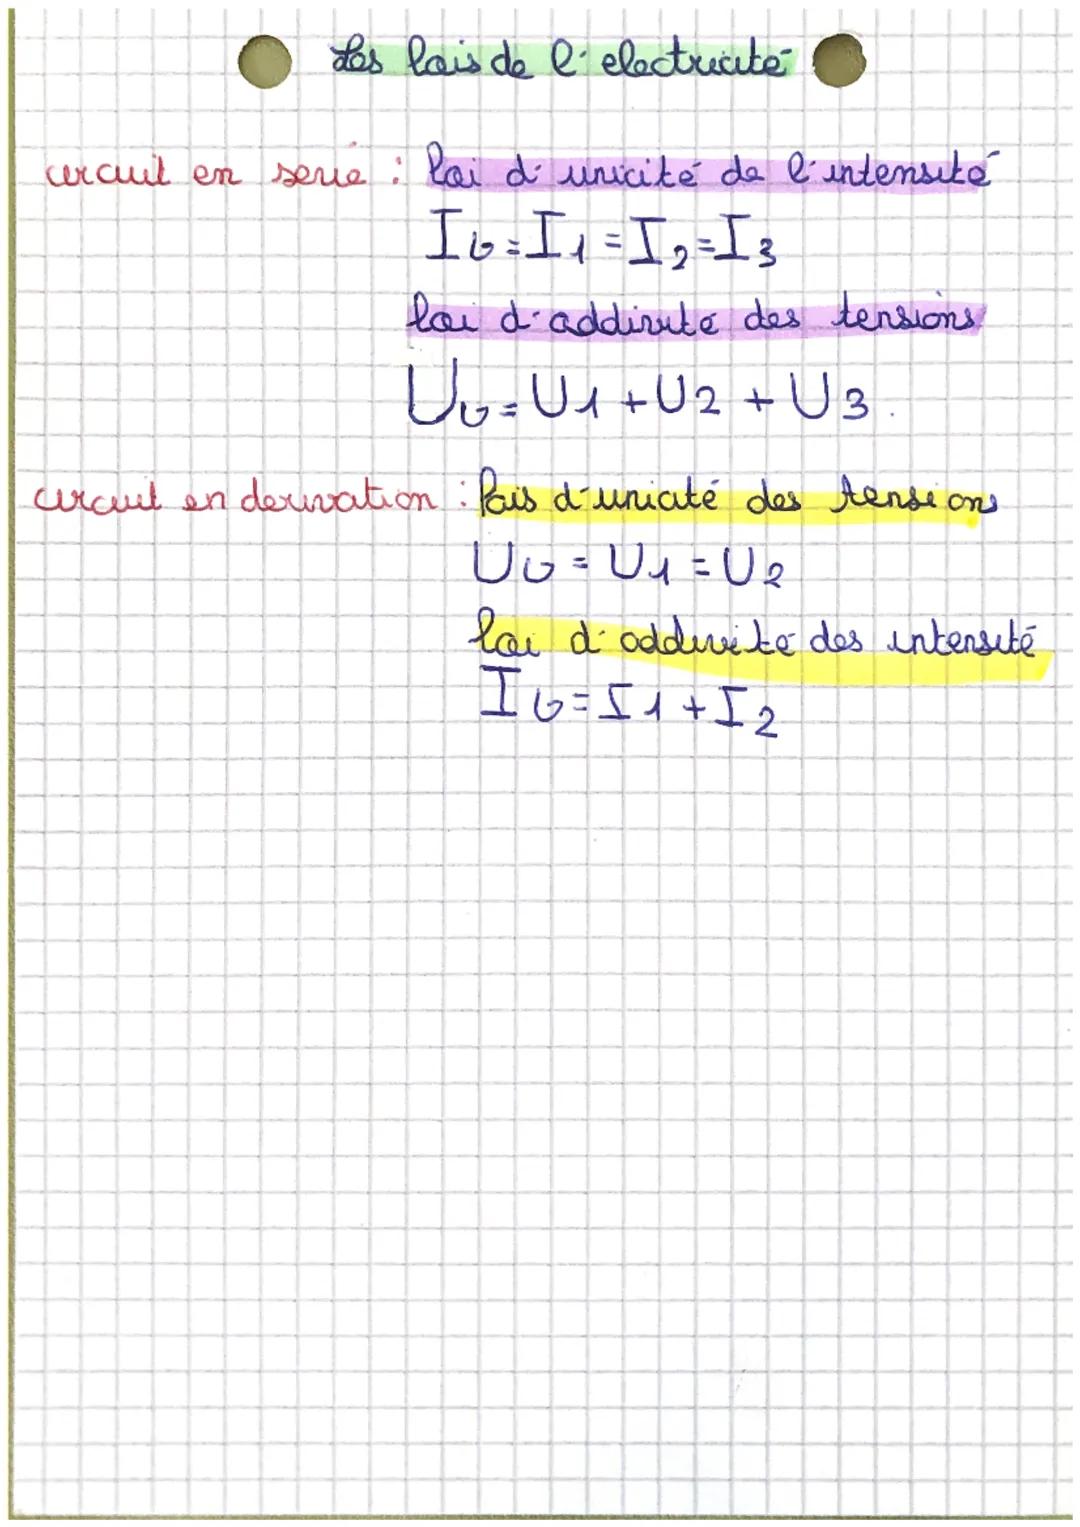 Les lois de l'electricité
circuit en serie : loi d'unicité de l'intensité
IG = I1 = I2 = I3
loi d'addivite des tensions
UG = U1 + U2 + U3.
circuit en derivation : lois d'unicité des tensions
UG = U1 = U2
loi d'addivité des intensité
IG = I1 + I2